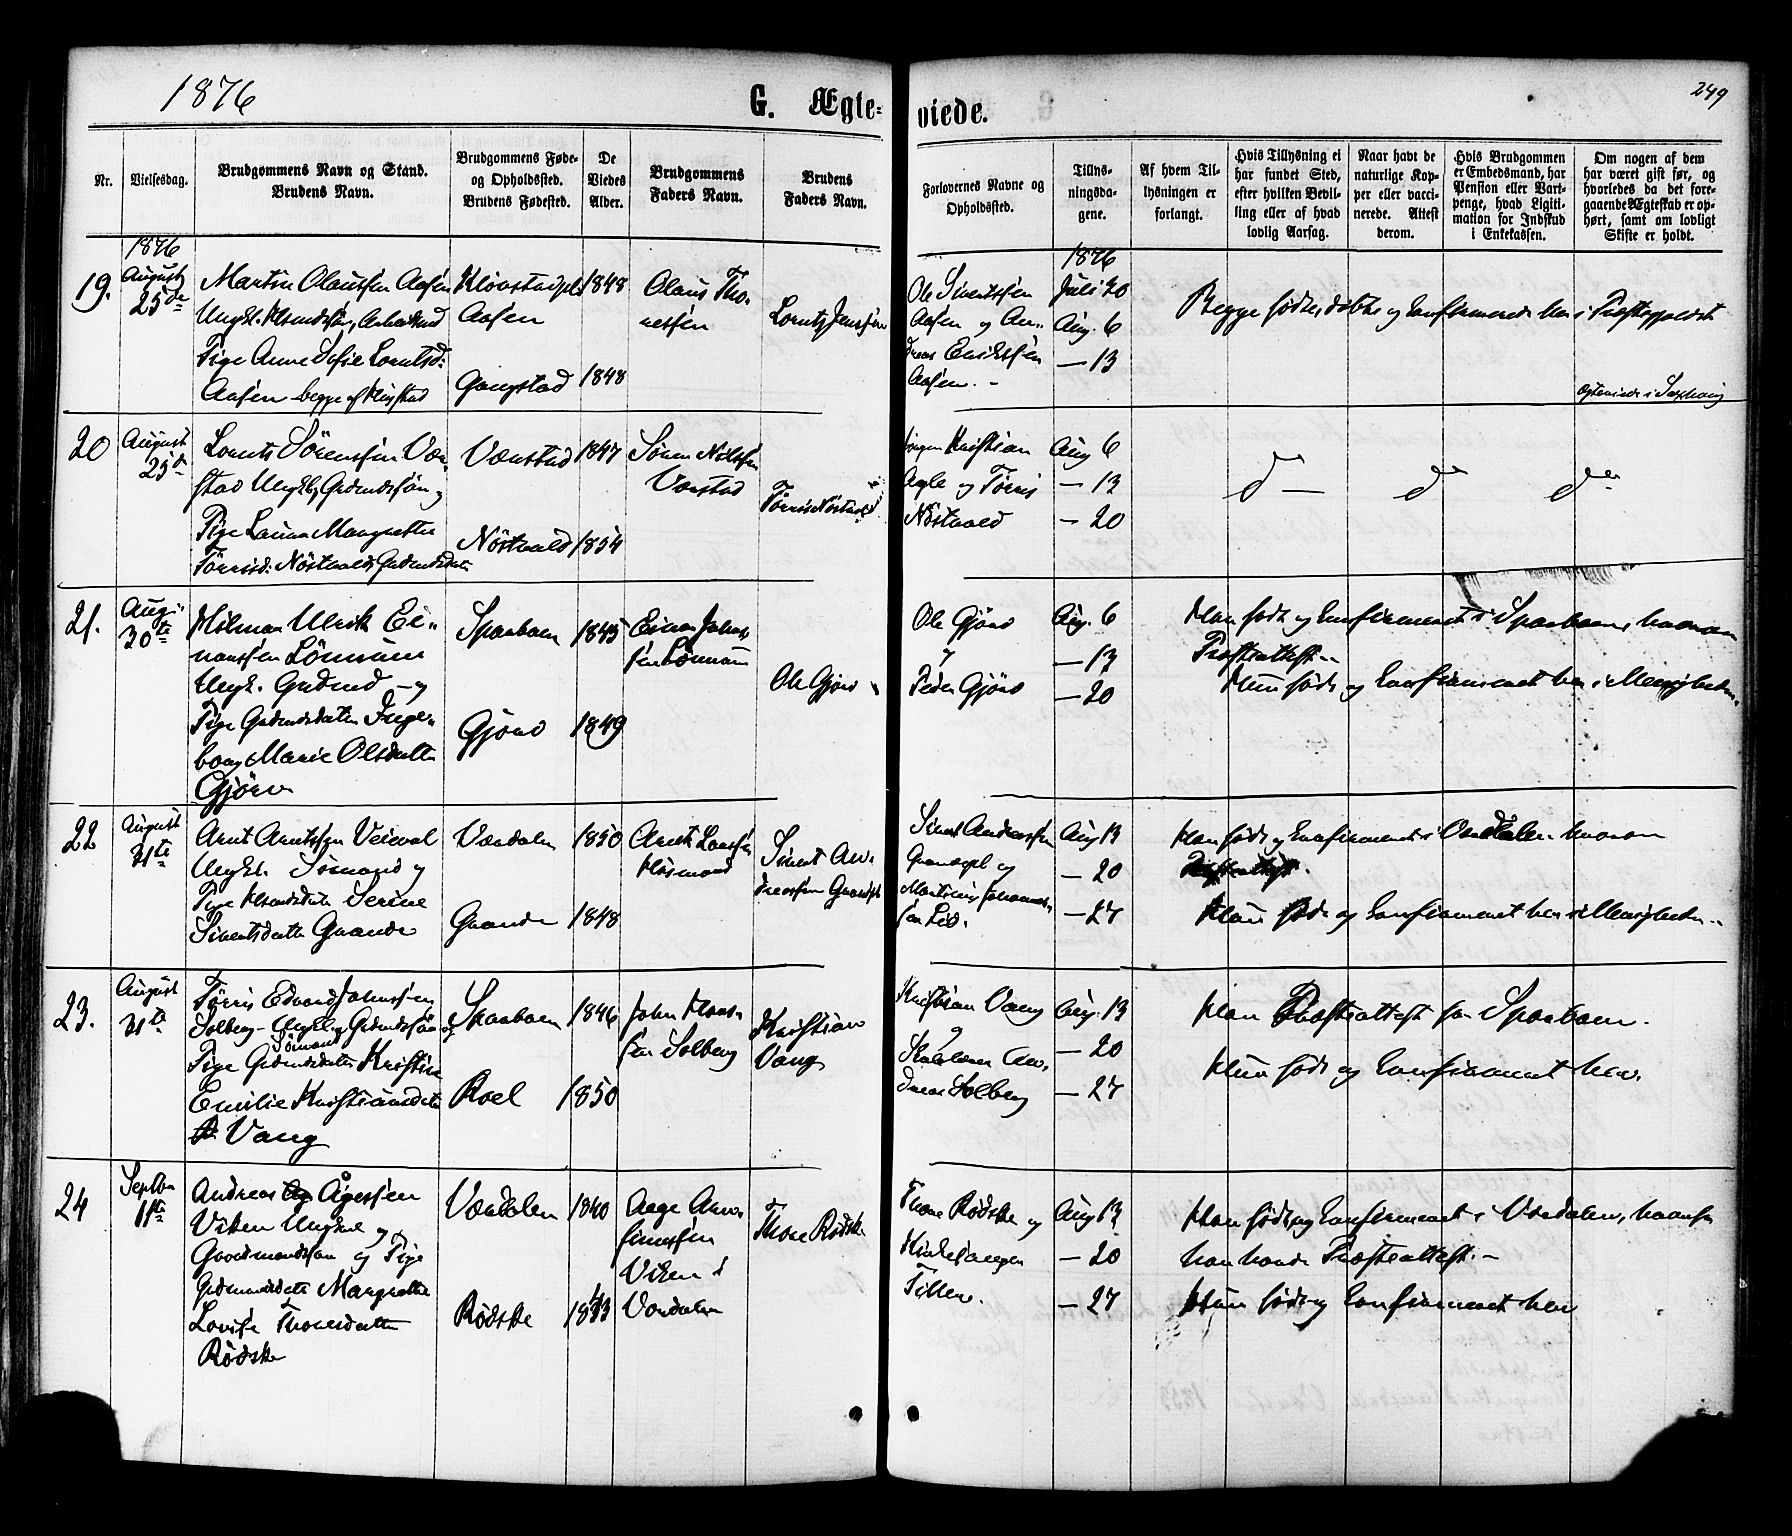 1876
G. Ægte=
viede.
249
Nr.
Vielsesdag.
Brudgommens Navn og Stand.
Brudens Navn.
Brudgommens Føde-
og Opholdssted.
Brudens Fødested.
De
Viedes
Alder.
Brudgommens
Faders Navn.
Brudens
Faders Navn.
Forlovernes Navne og
Opholdssted.
Tillys-
ningsda-
gene.
Af hvem Til-
lysningen er
forlangt.
Hvis Tillysning ei
har fundet Sted,
efter hvilken Bevil-
ling eller af hvad
lovlig Aarsag.
Naar havt de
naturlige Kop-
per eller vacci-
nerede. Attest
derom.
Hvis Brudgommen
er Embedsmand, har
Pension eller Vart-
penge, hvad Ligiti-
mation for Indskud
i Enkekassen.
Om nogen af dem
har været gift før, og
hvorledes da det fore-
gaaende Ægteskab er op-
hørt, samt om lovligt
Skifte er holdt.
19.
1876
August
25de
Martin Olaussen Aasen
Ungk.
Pige Anne Sofie Lorntsd:
Aasen begge af
Aasen
Gangstad
1848
1848
Olaus Tho-
nessen
Lornts Jenssen
Ole Sivertssen
Aasen og An-
dreas Erikssen
Aasen. -
1876
Juli 30
Aug. 6
— 13
Begge fødte, døbte og konfirmerede her i Præstegjeldet
Ægteviede i
20
August
25de
Lornts Sörenssen Væ-
stad Ungkl, Grdmdssön og
Pige Laura Margrethe
Törrisd: Nöstvold, Grdmdsdatter
Værstad
Nöstvold
1847
1854
Sören Nilssen
Værstad
Törris Nöstvold
Jörgen Kristian
Agle og Törris
Nöstvold
Aug 6
— 13
— 20
d —
do
do
21.
Aug.
30te
Hilmar Ulrik Ei-
narssen Lönnum
Ungk. Grdmd — og
Pige Grdmdsdatter Inge-
borg Marie Olsdatter
Gjörv
Sparboen
Gjörv
1845
1849
Einar Johns-
sen Lönnum
Ole Gjörv
Ole Gjörv
og
Peder Gjörv
Aug. 6
— 13
— 20
Han född og konfirmeret i Sparboen, hvorom
Præsteattest. —
Hun född og konfirmeret her i Menigheden.
22
August
31te
Arnt Arntssen Veieval
Ungkl. Sömand og
Pige Serine
Sivertsdatter Grande
Værdalen
Grande
1850
1848
Arnt Larssen
Husmand
Sivert An-
dreassen
Sivert Andreassen
og
Martinus Johannes-
sen Lid.
Aug 13
— 20
— 27
Han född og konfirmeret i Værdalen hvorom
Præsteattest.
Hun född og konfirmeret her i Menigheden. —
23.
August
31te
Törris Edvard Johnssen
Solberg — Ungkl, Grdmdssön og
Sömand
Pige Grdmdsdatter Kristine
Emilie Kristiansdatter
Vang
Sparboen
Roel
1846
1850
John
sen Solberg
Kristian
Vang
Kristian Vang
og
An-
dreas Solberg
Aug. 13
— 20
— 27
Han Præsteattest fra Sparboen.
Hun född og konfirmeret her.
24
Septbr
11te
Andreas Ågessen
Viken Ungkar og
Gaardmandssön og Pige
Grdmandsdatter Margrethe
Lovise Thoresdatter
Rödske
Værdalen
Rödske
1840
1843
Aage Arn-
Viken i
Værdalen
Thore Rödske
Thore Rödske og
Tiller.
Aug 13
— 20
— 27
Han född og konfirmeret i Værdalen, hvorfra
han havde Præsteattest. —
Hun född og konfirmeret her